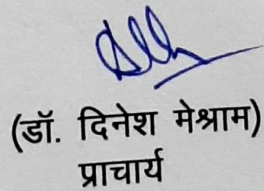 (डॉ. दिनेश मेश्राम)
प्राचार्य